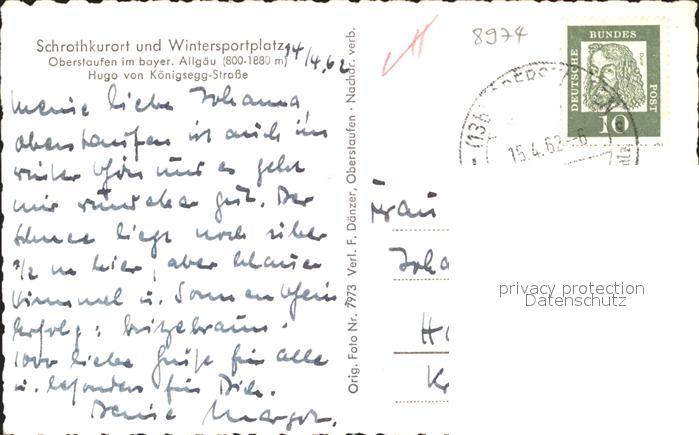 Schrothkurort und Wintersportplatz
Oberstaufen im bayer. Allgäu (800-1880 m)
Hugo von Königsegg-Straße
14/4.62
Meine liebe Johanna,
Oberstaufen ist auch im
Winter schön und es geht
mir wunderbar gut. Der
Schnee liegt noch über
½ m hier, aber blauer
Himmel u. Sonnenschein
Erfolg: knitzebraun.
1000 liebe Grüße für alle
u. besonders für Dich.
Deine Margot.
Orig. Foto Nr. 7973 Verl. F. Dänzer, Oberstaufen - Nachdr. verb.
8974
DEUTSCHE
BUNDES
POST
10
15.4.62-6
Frau
Joha
privacy protection
Datenschutz